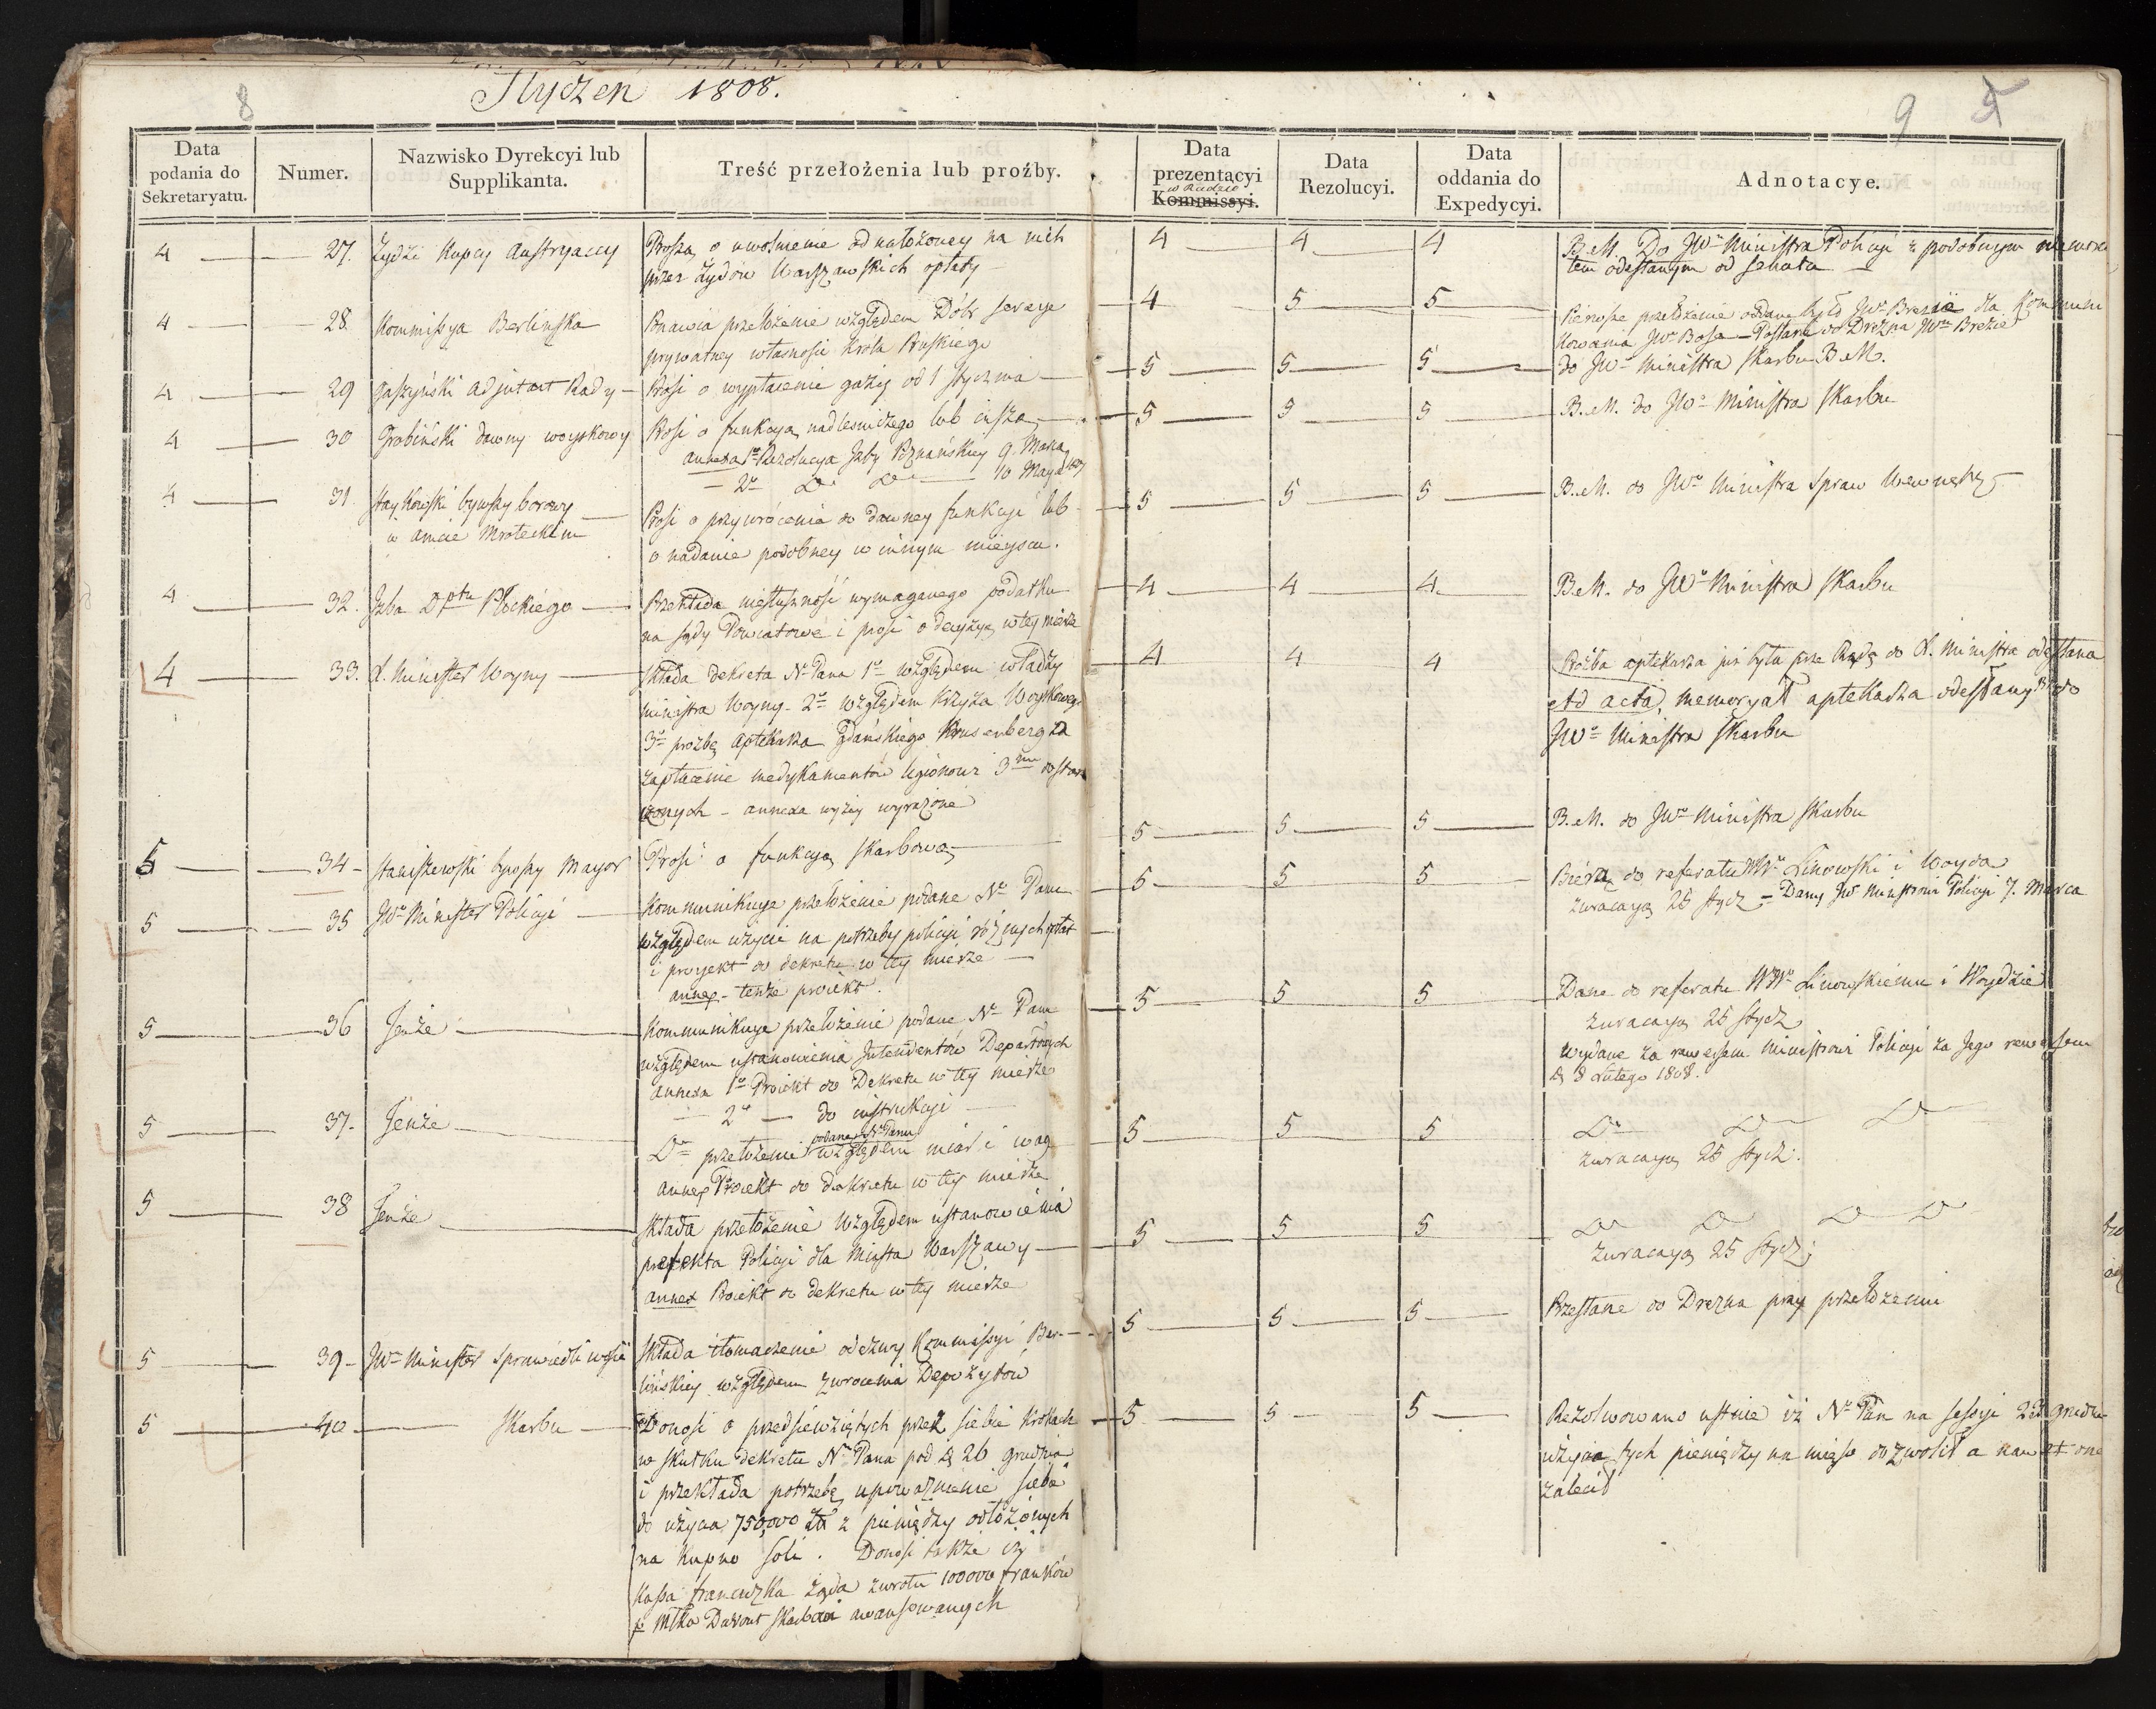 8
Styczen 1808.
9
Data podania do Sekretaryatu.
Numer.
Nazwisko Dyrekcyi lub Supplikanta.
Treść przełożenia lub proźby.
Data prezentacyi w Radzie Kommissyi.
Data Rezolucyi.
Data oddania do Expedycyi.
Adnotacye.
4 27. Żydzi Kupcy Austryaccy Proszą o uwolnienie od nałożoney na nich 4 4 4 B.M. Do JWo Ministra Policyi z podobnym
przez Żydów Warszawskich opłaty
tem odesłanym od Senatu
4 28. Kommissya Berlinska Ponawia przełożenie względem Dóbr 4 5 5 Pierwsze przełożenie oddane było JWo Brezie dla
prywatney własności Króla Pruskiego
kowania JWo Bose – Posłane do Drezna JWu Brezie
4 29 Gaszyński adjutant Rady Prosi o wypłacenie gaży od 1 stycznia 5 5 5 do JWo Ministra Skarbu B.M.
4 30 Grabiński dawny woyskowy Prosi o funkcyą nadlesniczego lub inszą 5 5 5 B.M. do JWo Ministra Skarbu
annexa 1o Rezolucya Izby Poznańskiey 9. Maia
2o Do Do 10 Maya 1807
4 31. były borowy Prosi o przywrócenia do dawney funkcyi lub 5 5 5 B.M. do JWo Ministra Spraw Wewnętrz
w amcie Mroteckim o nadanie podobney w innym mieyscu.
4 32. Izba Dptu Płockiego Przekłada niesłuszność wymaganego podatku 4 4 4 B.M. do JWo Ministra Skarbu
na sądy Powiatowe i prosi o decyzyą w tey mierze
4 33. X. Minister Woyny Składa dekreta No Pana 1o względem władzy 4 4 4 Proźba aptekarza już była prze Radę do X. Ministra odesłana
ministra Woyny – 2o względem Krzyża Woyskowego
ad acta, memoryał aptekarza odesłany do
3o prozbę Aptekarza Gdańskiego Krusenberg za
JWo Ministra Skarbu
zapłacenie medykamentów legionowi 3mu dostar
czonych – annexa wyżey wyrażone
5 34 Staniszewski bywszy Mayor Prosi o funkcyą skarbową 5 5 5 B.M. do JWo Ministra Skarbu
5 35 JWo Minister Policyi Kommunikuye przełożenie podane No Panu 5 5 5 Biérzą do referatu WWo Linowski i Woyda
względem użycia na potrzeby policyi róźnych opłat
zwracaią 25 stycz – Dany JWo Ministrowi Policyi 7. Marca
i proyekt do dekretu w tey mierze
annex – tenże proiekt.
5 36 Tenże Kommunikuye przełożenie podane No Panu 5 5 5 Dane do referatu WWo Linowskiemu i Woydzie
względem ustanowienia Intendentów Departowych
zwracaią 25 stycz
annexa 1o Proiekt do Dekretu w tey mierze
wydane za rewersem Ministrowi Policyi za Jego rewersem
2o – do instrukcyi
d 8 Lutego 1808.
5 37. Tenże Do przełożenie podane No Panu względem miar i wag 5 5 5 Do Do Do
annex Proiekt do dekretu w tey mierze
zwracaią 25 stycz.
5 38 Tenże Składa przełożenie względem ustanowienia 5 5 5 Do Do Do Do
prefekta Policyi dla Miasta Warszawy
zwracaią 25 stycz.
annex Proiekt do dekretu w tey mierze
5 39 JWo Minister Sprawiedliwości Składa tłomaczenie odezwy Kommissyi Ber- 5 5 5 Przesłane do Drezna przy przełożeniu
lińskiey względem zwrocenia Depozytów
5 40 Skarbu Donosi o przedsiewziętych przez siebie krokach 5 5 5 Rezolwowano ustnie iż No Pan na sessyi grudn
w skutku dekretu No Pana pod d 26 grudnia
użycia tych pieniędzy na mięso dozwolił a nawet one
i przekłada potrzebę upoważnienia siebie
zalecił
do użycia 750,000 Zł z pieniędzy odłożonych
na kupno soli. Donosi także iż
Kassa francuzka żąda zwrotu 100000 franków
Davout Skarbowi awansowanych